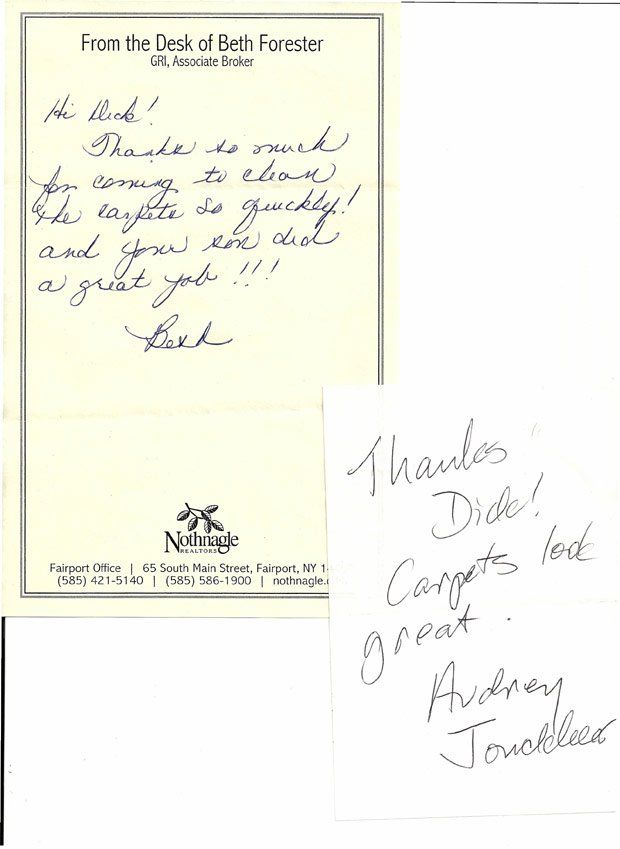 From the Desk of Beth Forester
GRI, Associate Broker
Hi Dick!
Thanks so much
for coming to clean
the carpets so quickly!
and your son did
a great job!!!
Beth
Nothnagle
REALTORS
Fairport Office | 65 South Main Street, Fairport, NY 1
(585) 421-5140 | (585) 586-1900 | nothnagle.
Thanks
Dick!
Carpets look
great.
Audrey